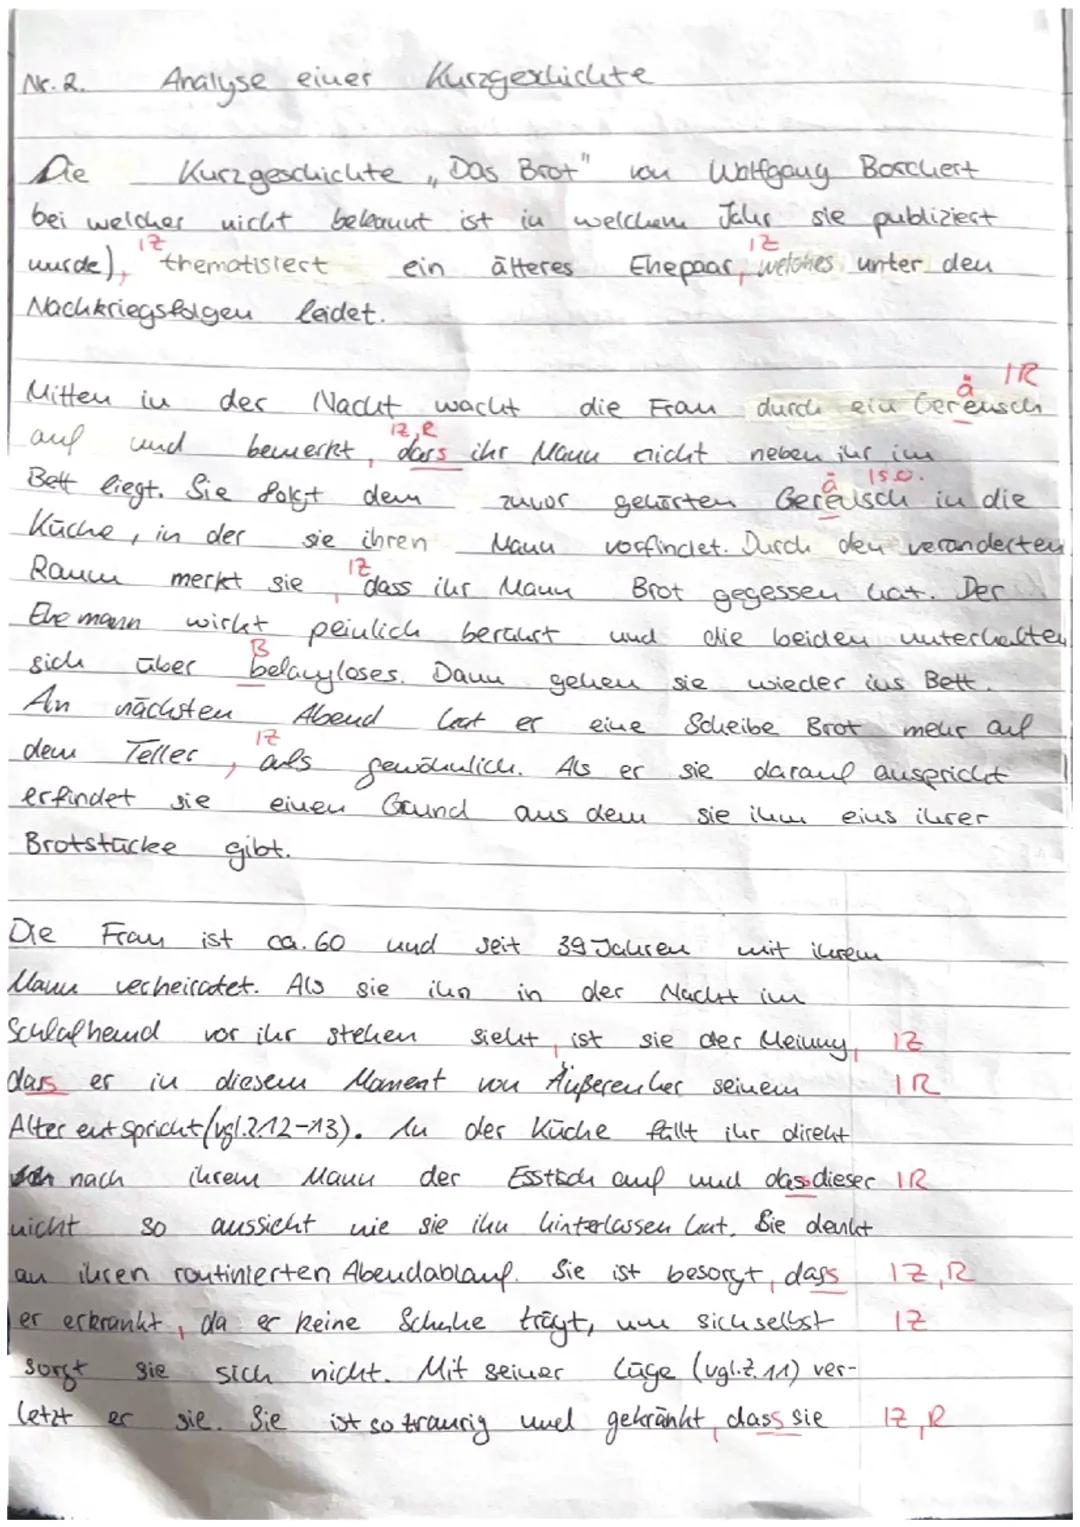 Nr. 2. Analyse einer Kurzgeschichte
Die Kurzgeschichte „Das Brot" von Wolfgang Borchert
bei welcher nicht bekannt ist in welchem Jahr sie publiziert
IZ IZ
wurde), thematisiert ein älteres Ehepaar, welches unter den
Nachkriegsfolgen leidet.
ä IR
Mitten in der Nacht wacht die Frau durch ein Gereusch
IZ,R
auf und bemerkt, dass ihr Mann nicht neben ihr im
ä Is.o.
Bett liegt. Sie folgt dem zuvor gehörten Gereusch in die
Küche, in der sie ihren Mann vorfindet. Durch den veränderten
IZ
Raum merkt sie, dass ihr Mann Brot gegessen hat. Der
Ehemann wirkt peinlich berührt und die beiden unterhalten
B
sich über belangloses. Dann gehen sie wieder ins Bett.
An nächsten Abend hat er eine Scheibe Brot mehr auf
IZ
dem Teller, als gewöhnlich. Als er sie darauf anspricht
erfindet sie einen Grund aus dem sie ihm eins ihrer
Brotstücke gibt.
Die Frau ist ca. 60 und seit 39 Jahren mit ihrem
Mann verheiratet. Als sie ihn in der Nacht im
Schlafhemd vor ihr stehen sieht, ist sie der Meinung, IZ
dass er in diesem Moment von Äußerenher seinem IR
Alter entspricht (vgl. Z.12-13). In der Küche fällt ihr direkt
nach ihrem Mann der Esstisch auf und das dieser IR
nicht so aussieht wie sie ihn hinterlassen hat. Sie denkt
an ihren routinierten Abendablauf. Sie ist besorgt, dass IZ,R
er erkrankt, da er keine Schuhe trägt, um sich selbst IZ
sorgt sie sich nicht. Mit seiner Lüge (vgl. Z. 11) ver-
letzt er sie. Sie ist so traurig und gekränkt, dass sie IZ,R